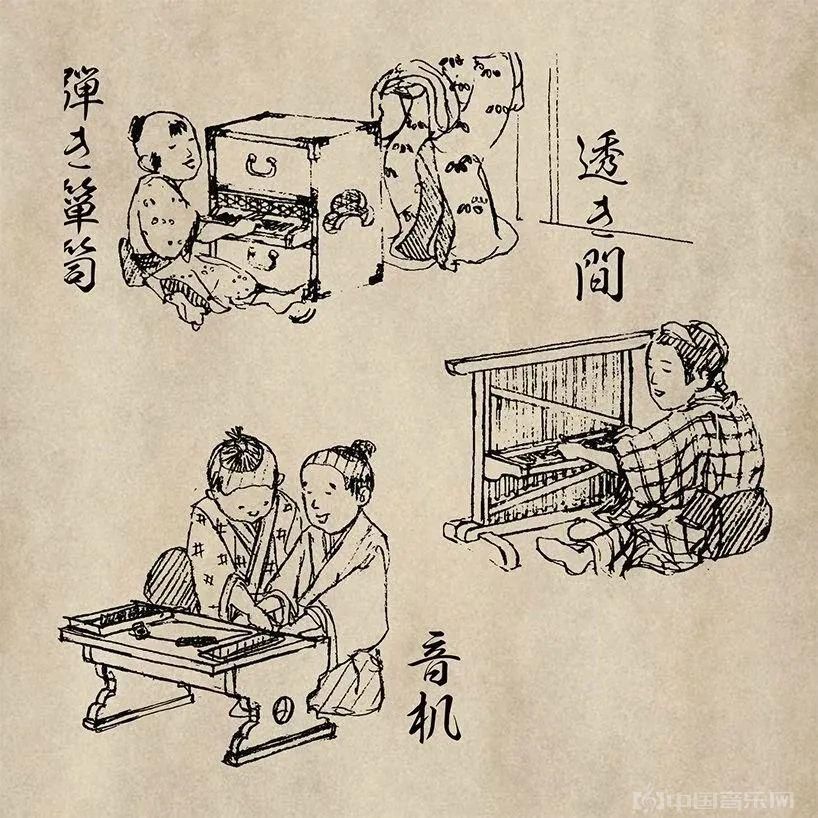 弾き箪笥
透き間
音机
中国音乐网